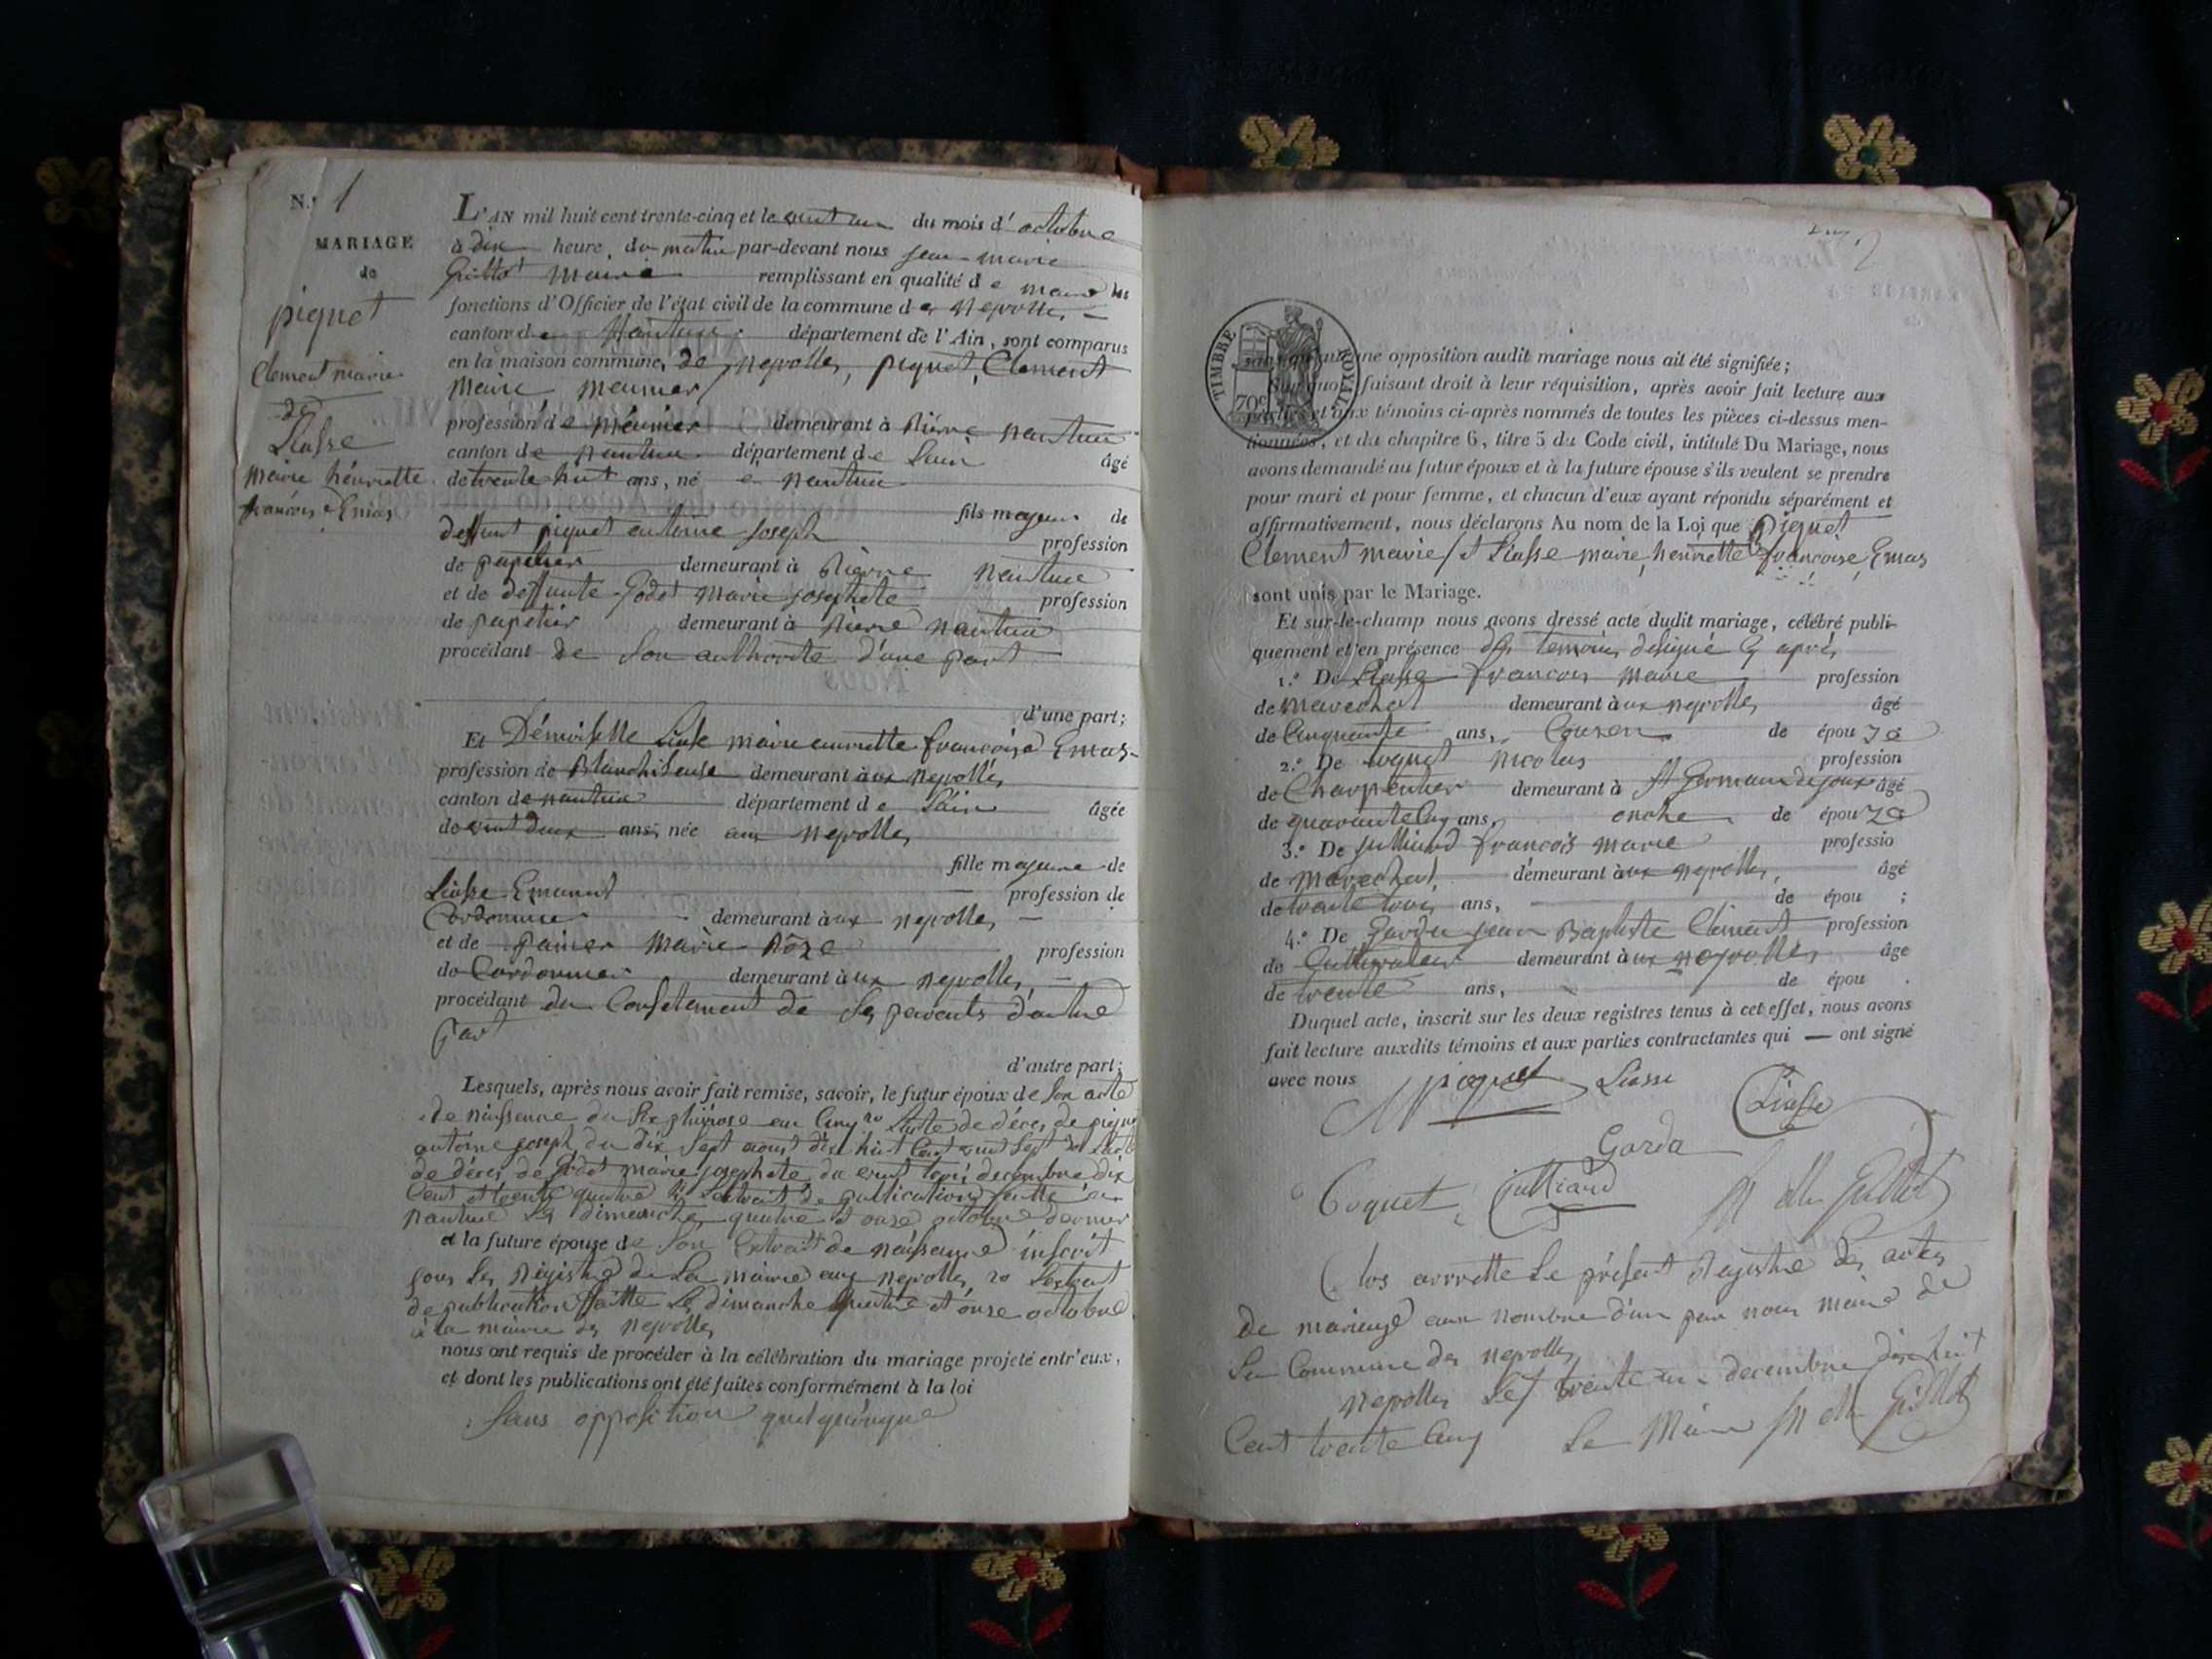 N.º 1
MARIAGE
de
piquet
Clement marie
de
Liasse
marie hénriette
françoise Emas
L'AN mil huit cent trente-cinq et le vint un du mois d'octobre
à dix heure du matin par-devant nous jean marie
maire remplissant en qualité de maire les
fonctions d'Officier de l'état civil de la commune des neyrolles
canton de Nantua département de l'Ain, sont comparus
en la maison commune, de neyrolles, piquet, Clement
marie meunier
profession de méunier demeurant à nantua
canton de nantua département de Lain âgé
de trente huit ans, né à nantua
fils majeur de
deffunt piquet antoine joseph profession
de papetier demeurant à nantua
et de deffunte Godet Marie josephete profession
de papetier demeurant à nantua
procédant de son authorite d'une part
d'une part;
Et Démoiselle Liasse marie françoise Emas
profession de Blanchiseuse demeurant à ux neyrolles
canton de nantua département de Láin âgée
de vint deux ans, née aux neyrolles
fille majeure de
Liasse Emanut profession de
Cordonnier demeurant à ux neyrolles
et de painer Marie Rôze profession
de Cordonnier demeurant à ux neyrolles,
procédant du Consetement de ses parents d'autre
part
d'autre part;
Lesquels, après nous avoir fait remise, savoir, le futur époux de son acte
de naissence du six pluviose an Cinq 2º Lacte de déces de piquet
antoine joseph du dix sept aout dix huit Cent vint sept 3º Lacte
de déces de Godet marie josephete du vint trois decembre dix
Cent et trente quatre Lextrait de publication faitte a
nantua les dimanche quatre et onze octobre dernier
et la future épouse de son Extrait de naissance inscrit
sous les Régistre de La mairie aux neyrolles 2º Lextrait
de publication faitte les dimanche quatre et onse octobre
à la mairie des neyrolles
nous ont requis de procéder à la célébration du mariage projeté entr'eux,
et dont les publications ont été faites conformément à la loi
sans opposition quelquonque
2
TIMBRE ROYAL
70c
sans qu'aucune opposition audit mariage nous ait été signifiée;
Sur quoi, faisant droit à leur réquisition, après avoir fait lecture aux
parties et aux témoins ci-après nommés de toutes les pièces ci-dessus men-
tionnées, et du chapitre 6, titre 5 du Code civil, intitulé Du Mariage, nous
avons demandé au futur époux et à la future épouse s'ils veulent se prendre
pour mari et pour femme, et chacun d'eux ayant répondu séparément et
affirmativement, nous déclarons Au nom de la Loi que Piquet
Clement marie et Liasse marie henriette françoise Emas
sont unis par le Mariage.
Et sur-le-champ nous avons dressé acte dudit mariage, célébré publi-
quement et en présence des temoins désigné Cy aprés
1.º De Liasse francois marie profession
de marechal demeurant à ux neyrolles âgé
de Cinquante ans, Cousen de épouze
2.º De Coquet nicolas profession
de Charpentier demeurant à St Germain de joux âgé
de quarante Cinq ans, oncle de épouze
3.º De julliard françois marie professio
de marechal, demeurant à ux neyrolles, âgé
de trente trois ans, de épou ;
4.º De Garda jean Baptiste Clément profession
de Cultivateur demeurant à ux neyrolles âge
de trente ans, de épou .
Duquel acte, inscrit sur les deux registres tenus à cet effet, nous avons
fait lecture auxdits témoins et aux parties contractantes qui — ont signé
avec nous piquet Liasse Liasse
Garda
Coquet julliard
Clos arrrette le présent Registre des actes
de mariage aux nombre d'un par nous maire de
la Commune des neyrolles
neyrolles le trente un decembre dix huit
Cent trente Cinq Le Maire